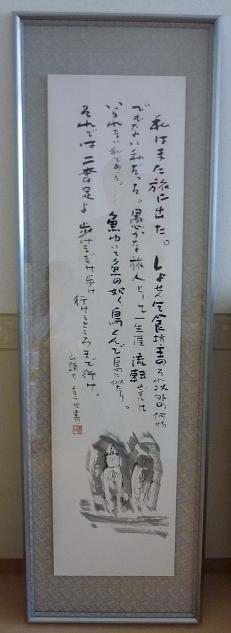 私はまた旅に出た。しよせん乞食坊主のそれ以外の何物
でもない私だった。愚かな旅人として一生涯流転せずには
いられない私であつた。魚ゆいて魚の如く鳥とんで鳥に似たり。
それでは二本の足よ歩けるだけ歩け行けるところまで行け。
山頭火